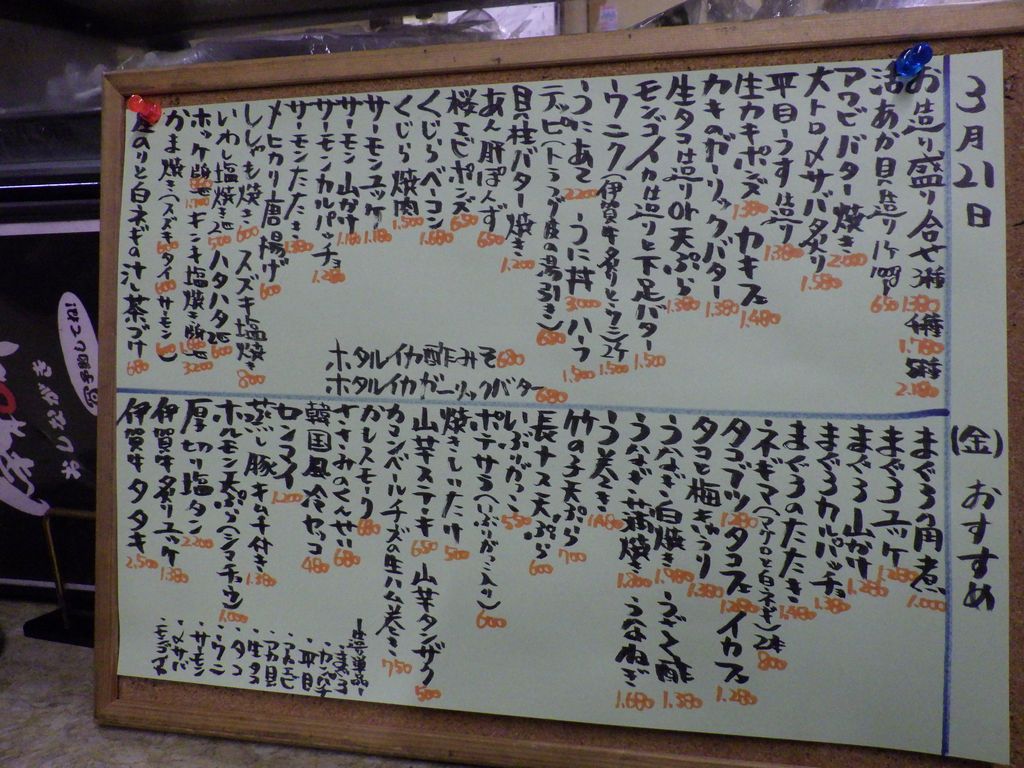 3月21日(金)おすすめ
お造り盛り合せ3種1380 4種1.780 5種2.180
活あか貝造り1ケ1貫650
アワビバター焼き2.000
大トロ〆サバタタリ1.580
平目うす造り1.380
生カキポンズ1.380 カキフライ1.480
カキのガーリックバター1.380
生タコ造りor天ぷら1.380
モンゴイカ造りと下足バター1.500
ウニク(伊賀牛炙りとウニ)2ケ1.500
うにあて2200 うに丼3000 ハーフ1.900
テッピ(トラフグ皮の湯引き)650
貝柱バター焼き1.200
あん肝ぽんず650
桜エビポンズ650
くじらベーコン1.680
くじら焼肉1.500
サーモンユッケ1.180
サーモン山かけ1.180
サーモンカルパッチョ1.280
サーモンたたき1.380
メヒカリ唐揚げ600
ししゃも焼き600 スズキ塩焼き800
いわし塩焼き2匹500 ハタハタ2匹600
かま焼き(スズキ600 タイ600 サーモン600)
岩のりと白ネギの汁茶づけ680
ホタルイカ酢みそ680
ホタルイカガーリックバター680
まぐろ角煮1.000
まぐろユッケ1.280
まぐろ山かけ1.280
まぐろカルパッチョ1.380
まぐろのたたき1.480
ネギマ(マグロと白ネギ)2本800
タコブツ1280 タコフライ1280 イカフライ1.280
タコと梅きゅうり1.380
うなぎ白焼き1.980 うざく酢1.380
うなぎ蒲焼き1.980 うなねぎ1.680
う巻き1.480
竹の子天ぷら700
長ナス天ぷら600
いぶりがっこ550
ポテサラ(いぶりがっこ入り)600
焼きしいたけ500
山芋ステーキ650 山芋タンザク500
カマンベールチーズの生ハム巻き750
かもスモーク680
ささみのくんせい680
韓国風冷ヤッコ480
センマイ1.200
蒸し豚キムチ付き1.380
ホルモン天ぷら(シマチョウ)1.000
厚切り塩タン2.200
伊賀牛炙りユッケ1.380
伊賀牛タタキ2.500
・カンパチ
・平目
・アマエビ
・アカ貝
・生タコ
・タコ
・ウニ
・サーモン
・〆サバ
・モンゴイカ
おしながき